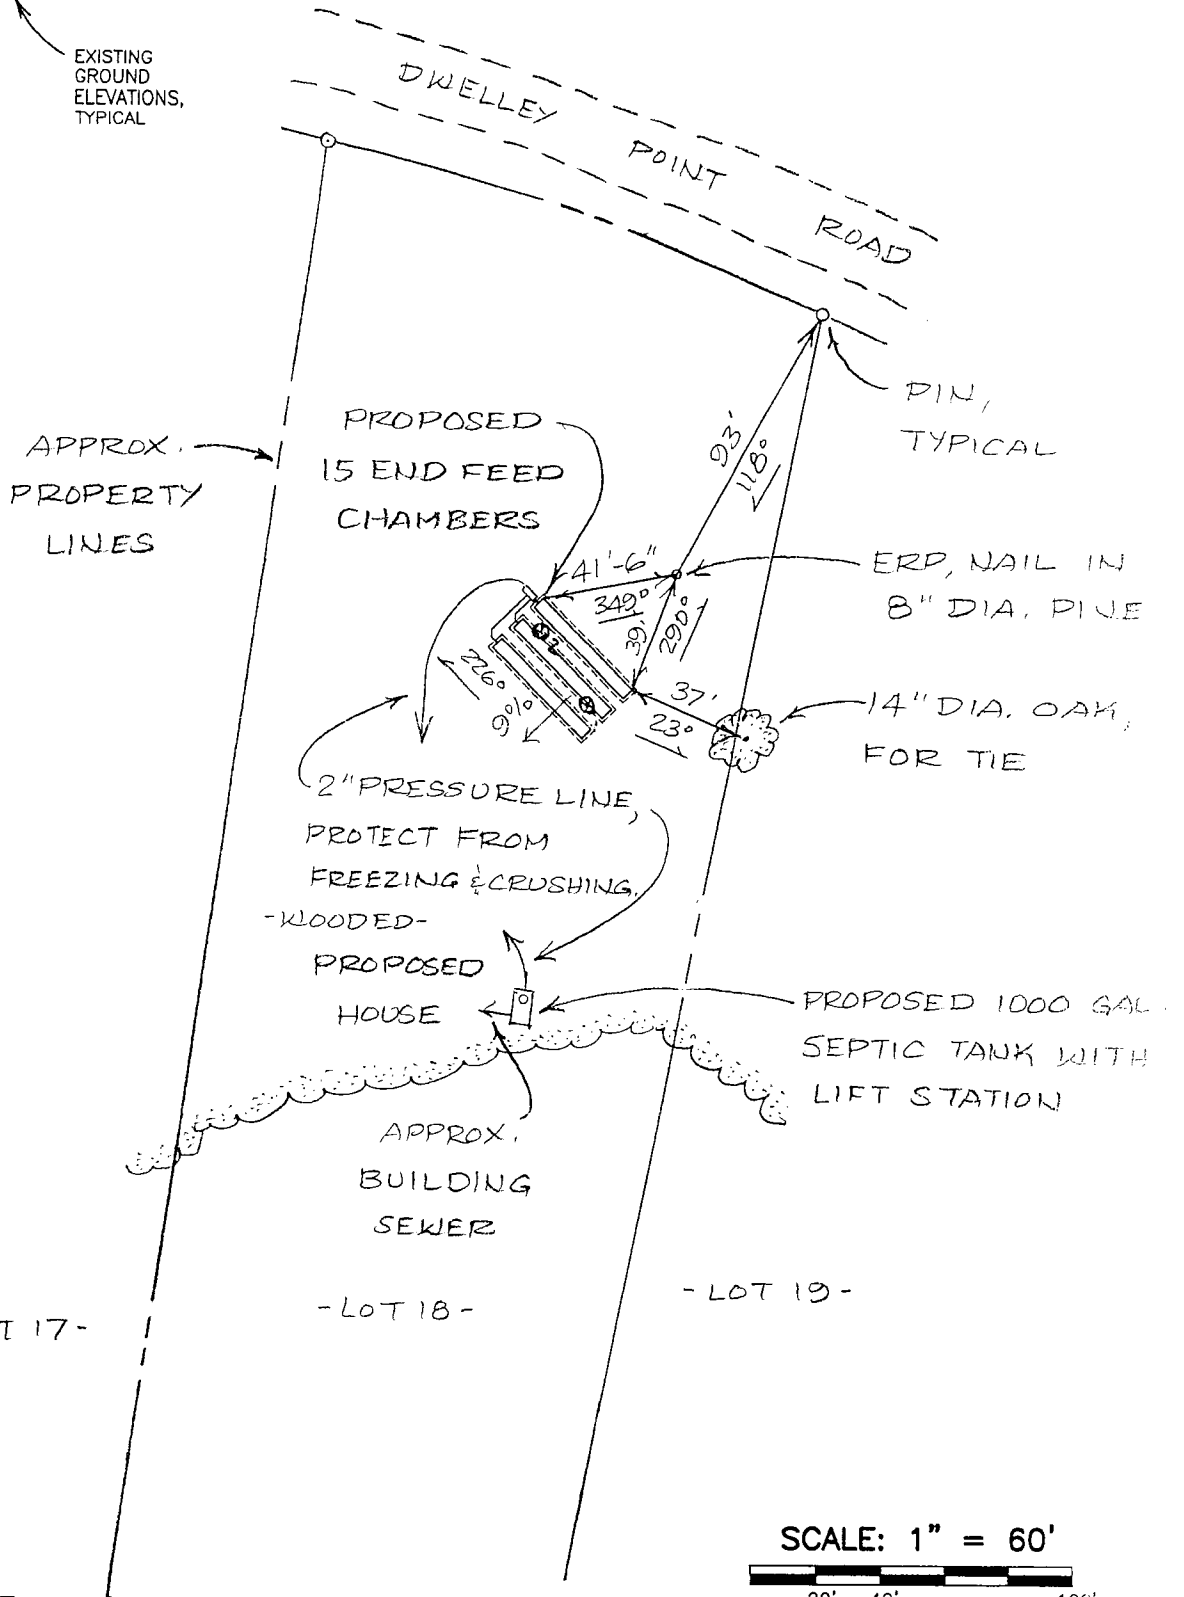 EXISTING
GROUND
ELEVATIONS,
TYPICAL
DWELLEY POINT ROAD
PIN,
TYPICAL
93'
118°
APPROX.
PROPERTY
LINES
PROPOSED
15 END FEED
CHAMBERS
41'-6"
349°
39'
290°
ERP, NAIL IN
8" DIA. PINE
2
1
226°
9%
37'
23°
14" DIA. OAK,
FOR TIE
2" PRESSURE LINE,
PROTECT FROM
FREEZING & CRUSHING.
-WOODED-
PROPOSED
HOUSE
PROPOSED 1000 GAL.
SEPTIC TANK WITH
LIFT STATION
APPROX.
BUILDING
SEWER
T 17-
-LOT 18-
-LOT 19-
SCALE: 1" = 60'